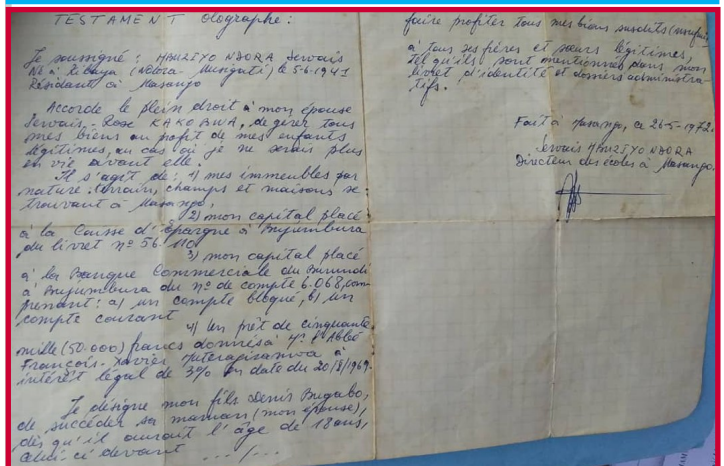 TESTAMENT Olographe :
Je soussigné : HAKIZIYO NDORA Servais
Né à (Ndora - Musigati) le 5-6-1941
Résidant à Masango
Accorde le plein droit à mon épouse
Servais-Rose KAKOBWA, de gérer tous
mes biens au profit de mes enfants
légitimes, au cas où je ne serais plus
en vie avant elle.
Il s'agit de : 1) mes immeubles par
nature : terrain, champs et maisons se
trouvant à Masango,
2) mon capital placé
à la Caisse d'Épargne à Bujumbura
du livret n° 56.110
3) mon capital placé
à la Banque Commerciale du Burundi
à Bujumbura du n° de compte 6.068, com
prenant : a) un compte bloqué, b) un
compte courant
4) Un prêt de cinquante
mille (50.000) francs donnés à l'Abbé
François-Xavier à
intérêt légal de 3% en date du 20/8/1969.
Je désigne mon fils Denis Bugabo,
de succéder sa maman (mon épouse),
dès qu'il aurait l'âge de 18 ans,
celui-ci devant .../...
faire profiter tous mes biens susdits
à tous ses frères et sœurs légitimes,
tel qu'ils sont mentionnés dans mon
livret d'identité et dossiers administra-
tifs.
Fait à Masango, ce 26-5-1972.
Servais NDORA
Directeur des écoles à Masango,